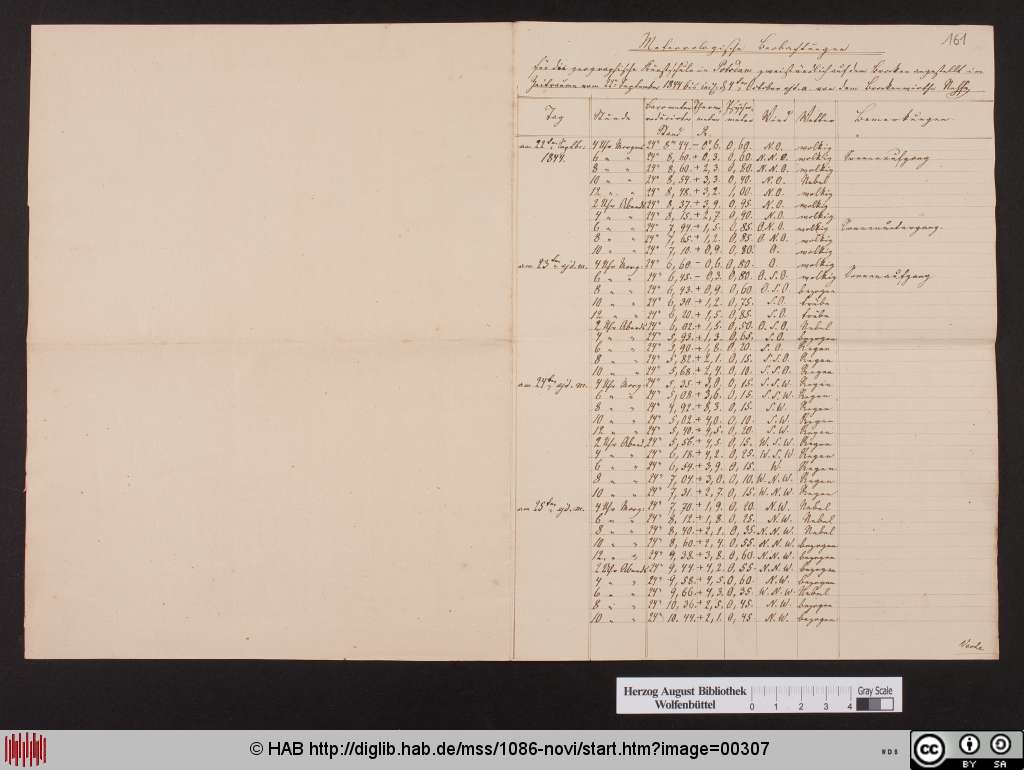 161
Meteorologische Beobachtungen
für die geographische Kunstschule in Potsdam zweistündlich auf dem Brocken angestellt im
Zeitraume vom 22ten September 1844 bis incl. d. 4ten October ejd. a. von dem Brockenwirthe Nehse
Tag Stunde Barometer reducirter Stand Thermometer R. Psychrometer Wind Wetter Bemerkungen
am 22ten Septbr. 4 Uhr Morgens 24" 8"44 - 0°,6. 0,60. N.O. wolkig
1844. 6 " " 24" 8,60 + 0,3. 0,60. N.N.O. wolkig Sonnenaufgang
8 " " 24" 8,60 + 2,3. 0,80. N.N.O. wolkig
10 " " 24" 8,54 + 3,3. 0,40. N.O. Nebel
12 " " 24" 8,48 + 3,2. 1,00. N.O. wolkig
2 Uhr Abends 24" 8,37 + 3,9. 0,45. N.O. wolkig
4 " " 24" 8,15 + 2,7. 0,40. N.O. wolkig
6 " " 24" 7,94 + 1,5. 0,85. O.N.O. wolkig Sonnenuntergang.
8 " " 24" 7,65 + 1,2. 0,85. O.N.O. wolkig
10 " " 24" 7,10 + 0,9. 0,80. O. wolkig
am 23ten ejd. m. 4 Uhr Morg. 24" 6,60 - 0,6. 0,80. O. wolkig
6 " " 24" 6,45 - 0,3. 0,80. O.S.O. wolkig Sonnenaufgang
8 " " 24" 6,43 + 0,9. 0,60 O.S.O. bezogen
10 " " 24" 6,30 + 1,2. 0,75. S.O. trübe
12 " " 24" 6,20 + 1,5. 0,85. S.O. trübe
2 Uhr Abends 24" 6,02 + 1,5. 0,50. O.S.O. Nebel
4 " " 24" 5,93 + 1,3. 0,65. S.O. bezogen
6 " " 24" 5,90 + 1,8. 0,20. S.O. Regen
8 " " 24" 5,82 + 2,1. 0,15. S.S.O. Regen
10 " " 24" 5,68 + 2,4. 0,10. S.S.O. Regen
am 24ten ejd. m. 4 Uhr Morg. 24" 5,35 + 3,0. 0,15. S.S.W. Regen
6 " " 24" 5,08 + 3,6. 0,15. S.S.W. Regen
8 " " 24" 4,92 + 3,3. 0,15. S.W. Regen
10 " " 24" 5,02 + 4,0. 0,10. S.W. Regen
12 " " 24" 5,40 + 4,5. 0,20. S.W. Regen
2 Uhr Abend. 24" 5,56 + 4,5. 0,15. W.S.W. Regen
4 " " 24" 6,18 + 4,2. 0,25. W.S.W Regen
6 " " 24" 6,54 + 3,9. 0,15. W. Regen
8 " " 24" 7,04 + 3,0. 0,10. W.N.W. Regen
10 " " 24" 7,31 + 2,7. 0,15. W.N.W. Regen
am 25ten ejd. m. 4 Uhr Morg. 24" 7,70 + 1,9. 0,20. N.W. Nebel
6 " " 24" 8,12 + 1,8. 0,25. N.W. Nebel
8 " " 24" 8,40 + 2,1. 0,35. N.N.W. Nebel
10 " " 24" 8,60 + 2,4. 0,55. N.N.W. bezogen
12 " " 24" 9,38 + 3,8. 0,60. N.N.W. bezogen
2 Uhr Abends 24" 9,44 + 4,2. 0,55. N.N.W. bezogen
4 " " 24" 9,58 + 4,5. 0,60. N.W. bezogen
6 " " 24" 9,66 + 4,3. 0,35. W.N.W. Nebel
8 " " 24" 10,36 + 2,5. 0,45. N.W. bezogen
10 " " 24" 10.44 + 2,1. 0,45 N.W. bezogen
Herzog August Bibliothek
Wolfenbüttel
0 1 2 3 4
Gray Scale
© HAB http://diglib.hab.de/mss/1086-novi/start.htm?image=00307
WD6
cc BY SA